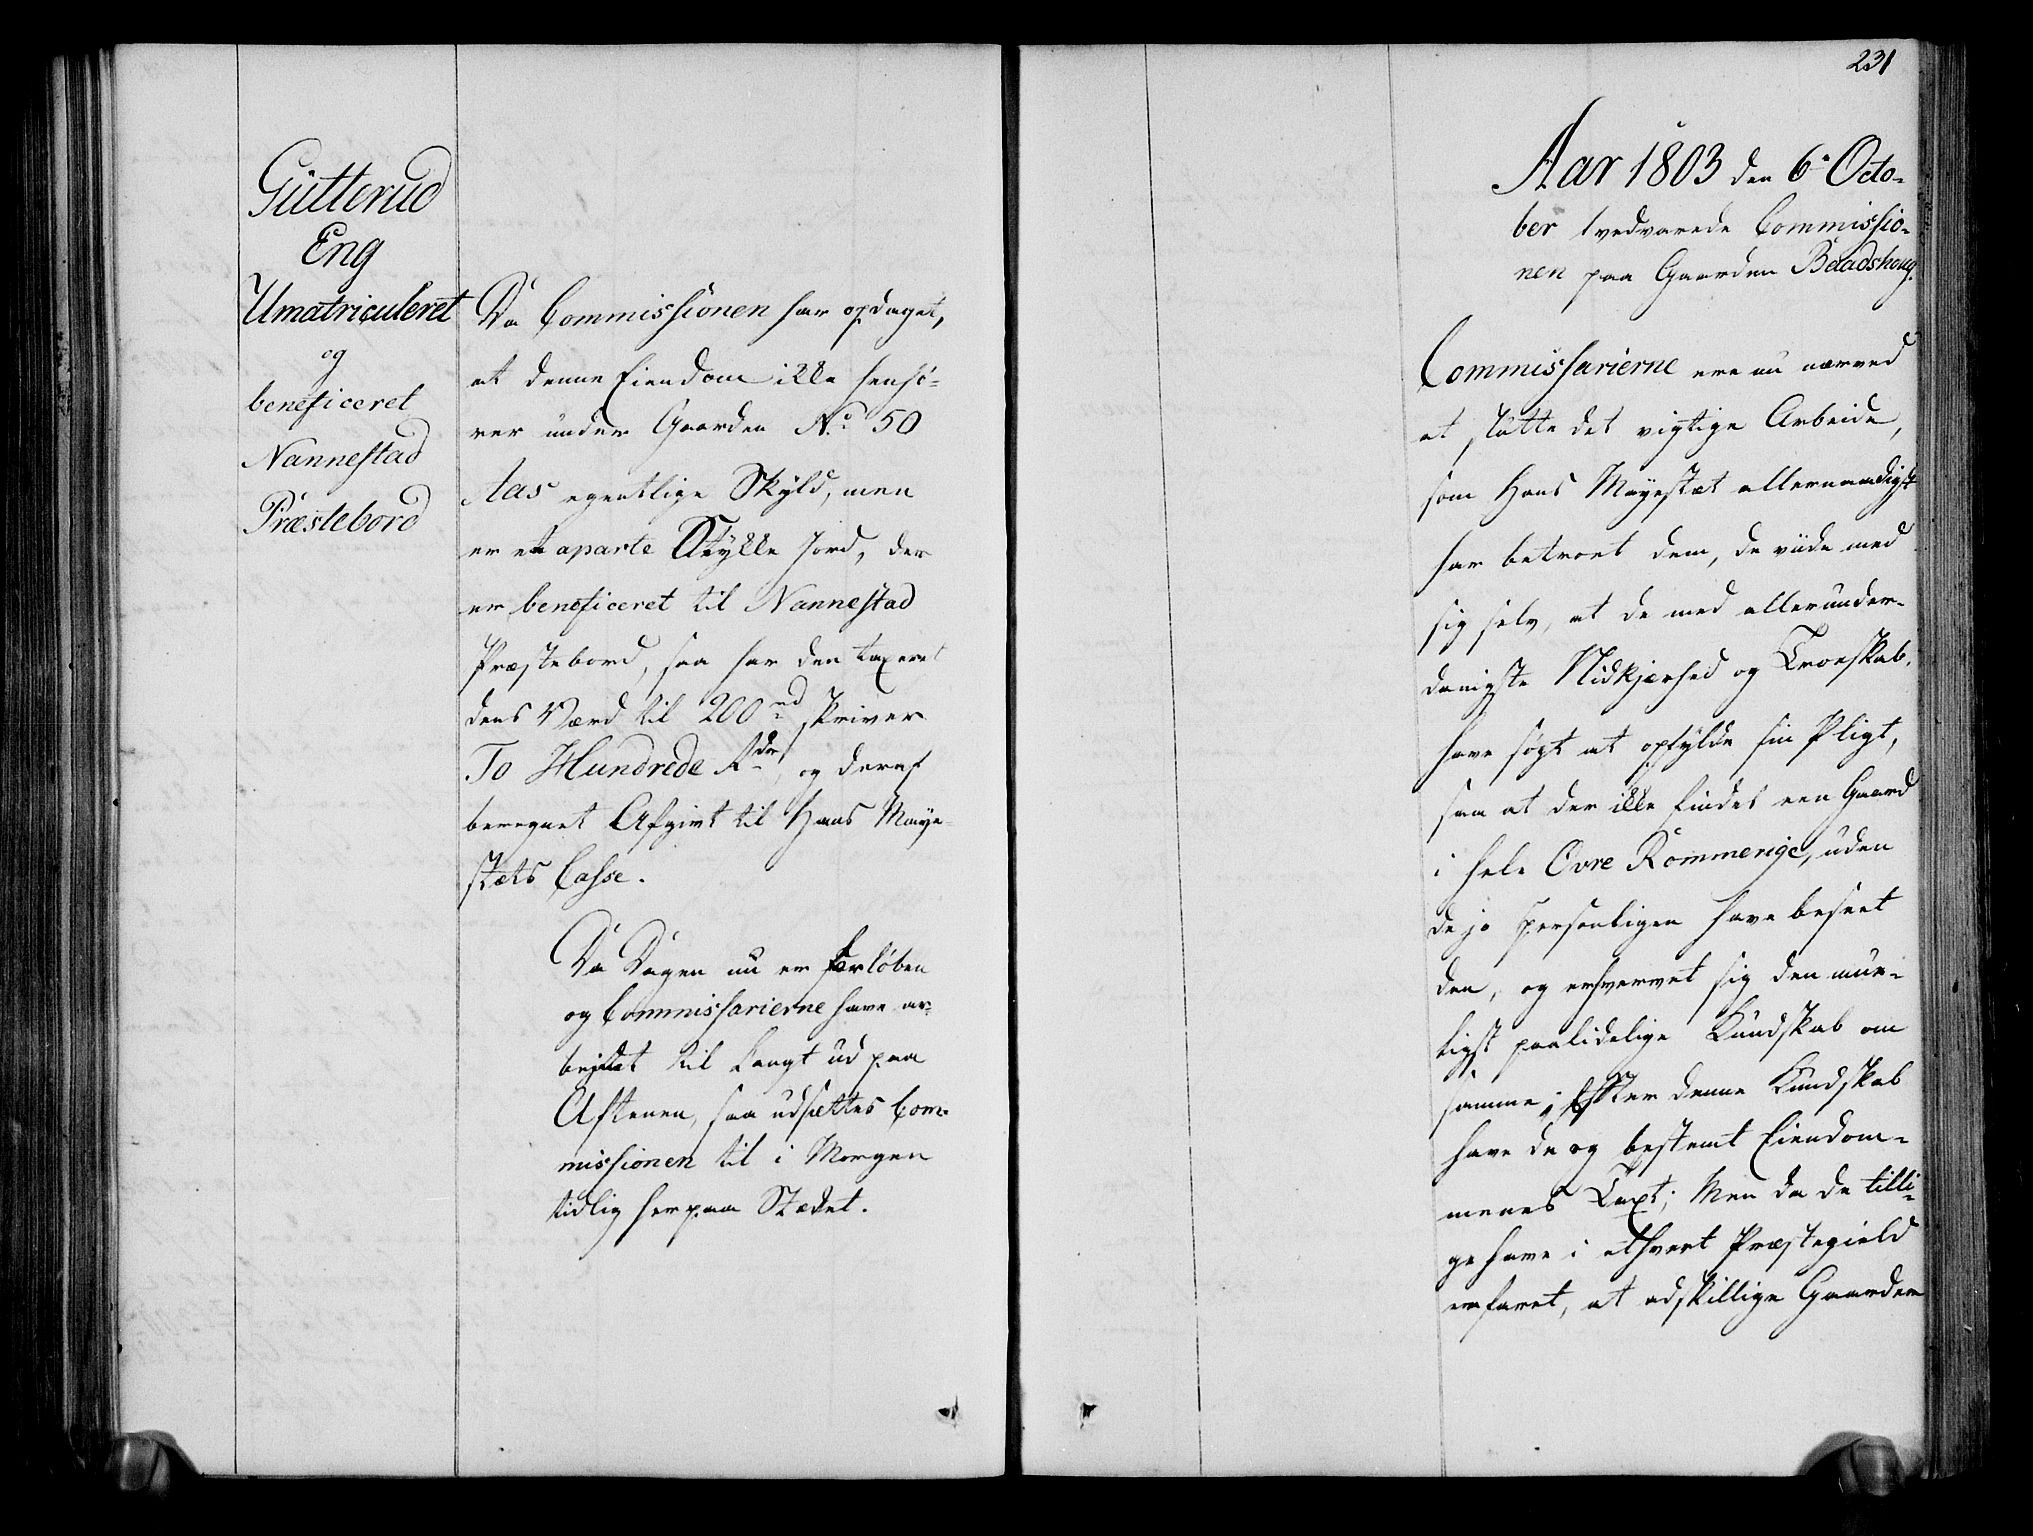 Gütterud
Eng
Umatriculeret
og
beneficeret
Nannestad
Præstebord
Da Commissionen har opdaget,
at denne Eiendom ikke henhö-
rer under Gaarden No. 50
Aas egentlige Skyld, men
er et aparte Stykke Jord, der
er beneficeret til Nannestad
Præstebord, saa har den taxeret
dens Værd til 200 rd skriver
To Hundrede Rdr, og deraf
beregnet Afgivt til Hans Maye-
stæts Casse.
Da Dagen nu er forløben
og Commissarierne have ar-
bejdet til Langt ud paa
Aftenen, saa udsættes Com-
missionen til i Morgen
tidlig her paa Stædet.
231
Aar 1803 den 6. Octo-
ber vedvarede Commissio-
nen paa Gaarden Baadshoug.
Commissarierne ere nu nærved
at slutte det vigtige Arbeide,
som Hans Mayestæt allernaadigst
har betroet dem, de viide med
sig selv, at de med allerunder-
danigste Nidkjærhed og Troeskab,
have søgt at opfylde sin Pligt,
saa at der ikke findes een Gaard
i hele Övre Rommerige, uden
de jo personligen have beseet
den, og erhvervet sig den mue-
ligst paalidelige Kundskab om
samme; Efter denne Kundskab
have de og bestemt Eiendom-
menes Taxt; Men da de tilli-
ge have i ethvert Præstegield
erfaret, at adskillige Gaarder